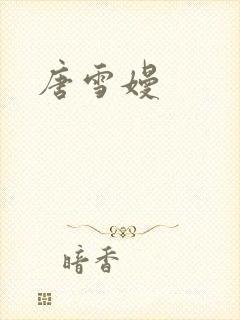 唐雪嫚
暗香